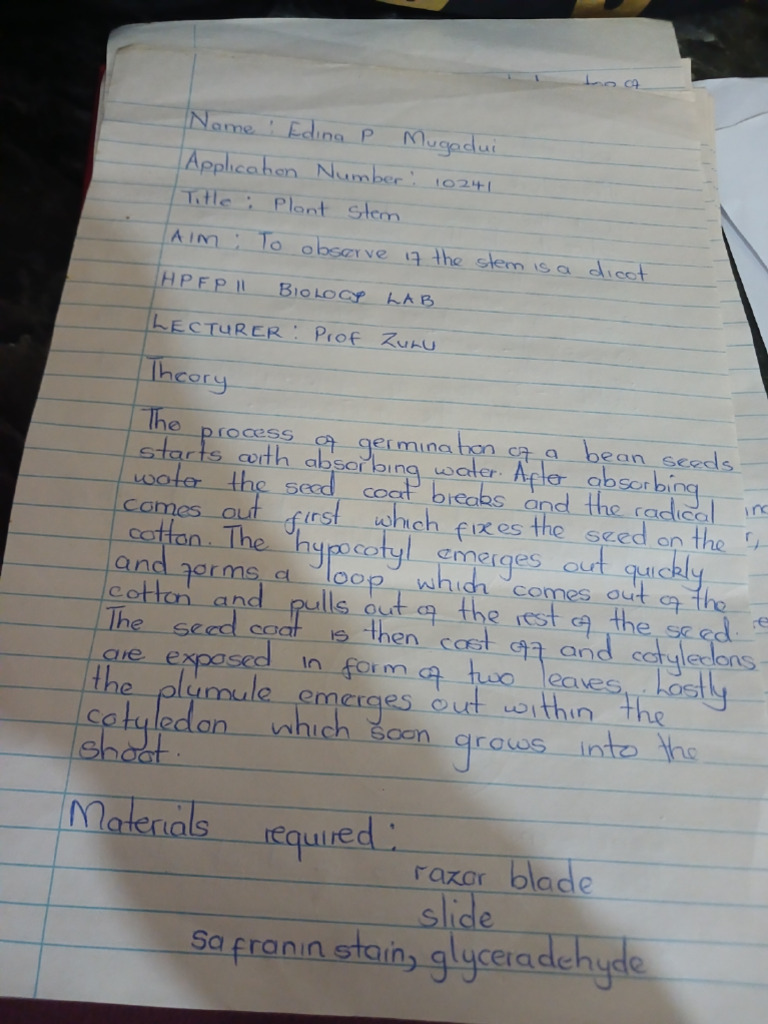 Name : Edina P Mugadui
Application Number : 10241
Title : Plant stem
AIM : To observe if the stem is a dicot
HPFP11 BIOLOGY LAB
LECTURER : Prof ZULU
Theory
The process of germination of a bean seeds
starts with absorbing water. After absorbing
water the seed coat breaks and the radical
comes out first which fixes the seed on the
cotton. The hypocotyl emerges out quickly
and forms a loop which comes out of the
cotton and pulls out of the rest of the seed.
The seed coat is then cast off and cotyledons
are exposed in form of two leaves, Lastly
the plumule emerges out within the
cotyledon which soon grows into the
shoot.
Materials required :
razor blade
slide
safranin stain, glyceradehyde